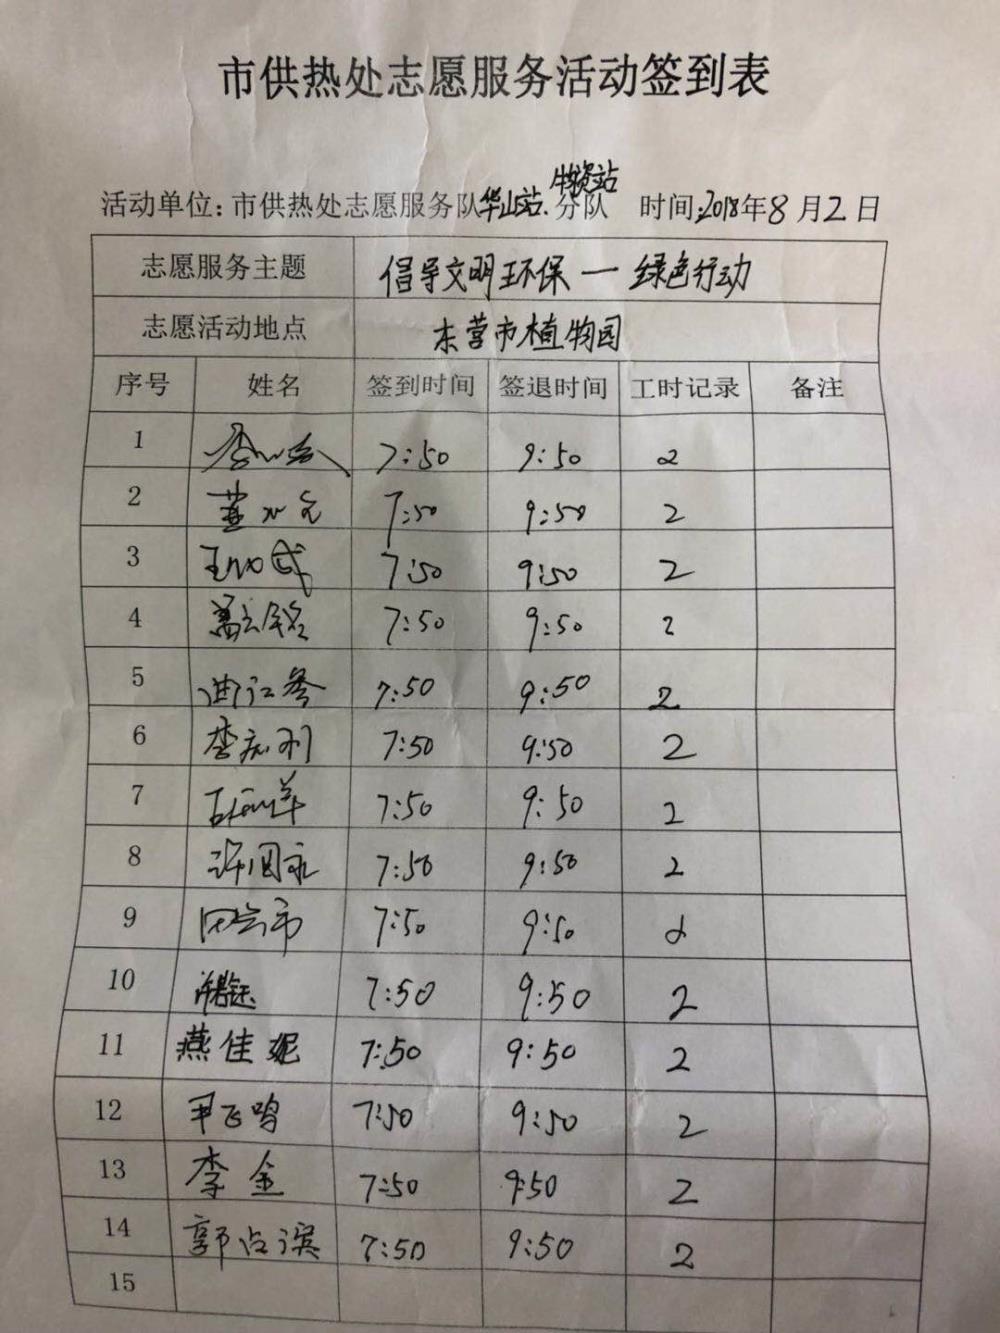 市供热处志愿服务活动签到表
物资站
活动单位:市供热处志愿服务队华山站.分队 时间:2018年8月2日
志愿服务主题 倡导文明环保一绿色行动
志愿活动地点 东营市植物园
序号 姓名 签到时间 签退时间 工时记录 备注
1 7:50 9:50 2
2 7:50 9:50 2
3 7:50 9:50 2
4 7:50 9:50 2
5 7:50 9:50 2
6 7:50 9:50 2
7 7:50 9:50 2
8 许国永 7:50 9:50 2
9 7:50 9:50 2
10 7:50 9:50 2
11 燕佳妮 7:50 9:50 2
12 尹飞鸣 7:50 9:50 2
13 李金 7:50 9:50 2
14 郭占滨 7:50 9:50 2
15